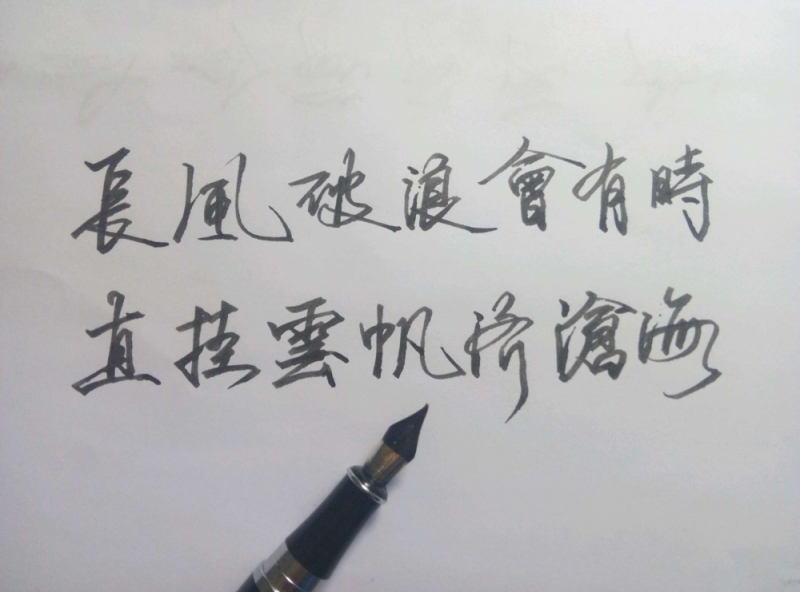 長風破浪會有時
直挂雲帆济滄海